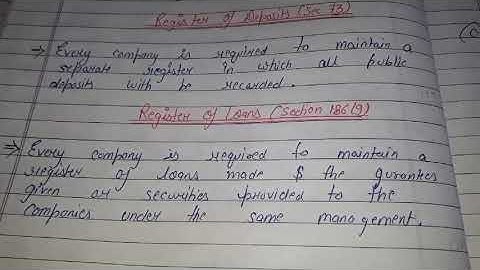 Register of Deposits (Sec 73)
⇒ Every company is required to maintain a
separate register in which all public
deposits with be recarded.
Register of Loans (Section 186(9)
⇒ Every company is required to maintain a
register of loans made $ the gurantes
given or securities provided to the
Companies under the same management.